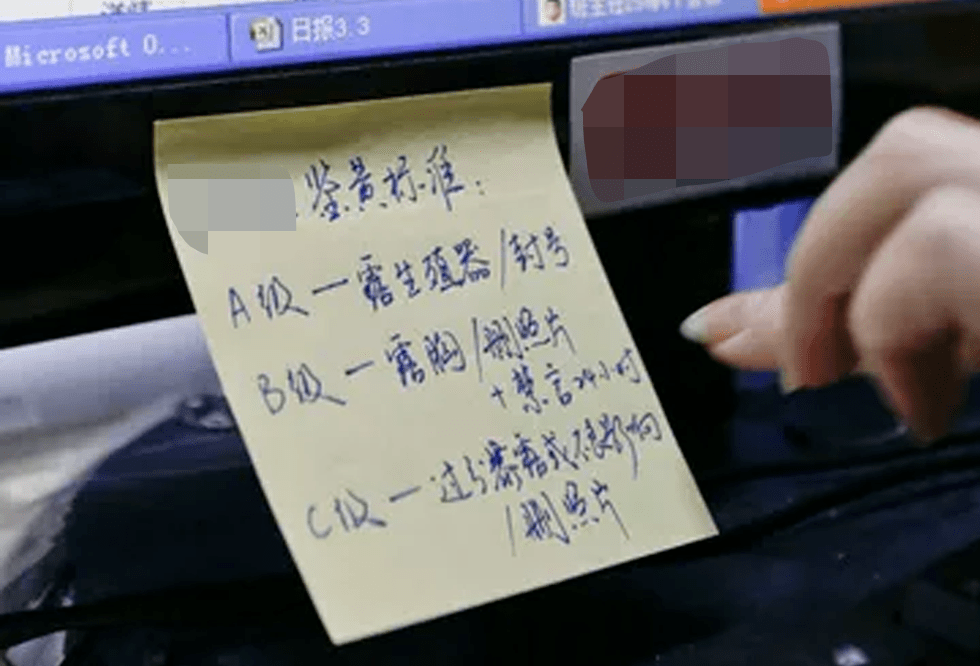 Microsoft O...
日报3.3
鉴黄标准:
A级—露生殖器/封号
B级—露胸/删照片
+禁言24小时
C级—过分暴露或不良影响
/删照片